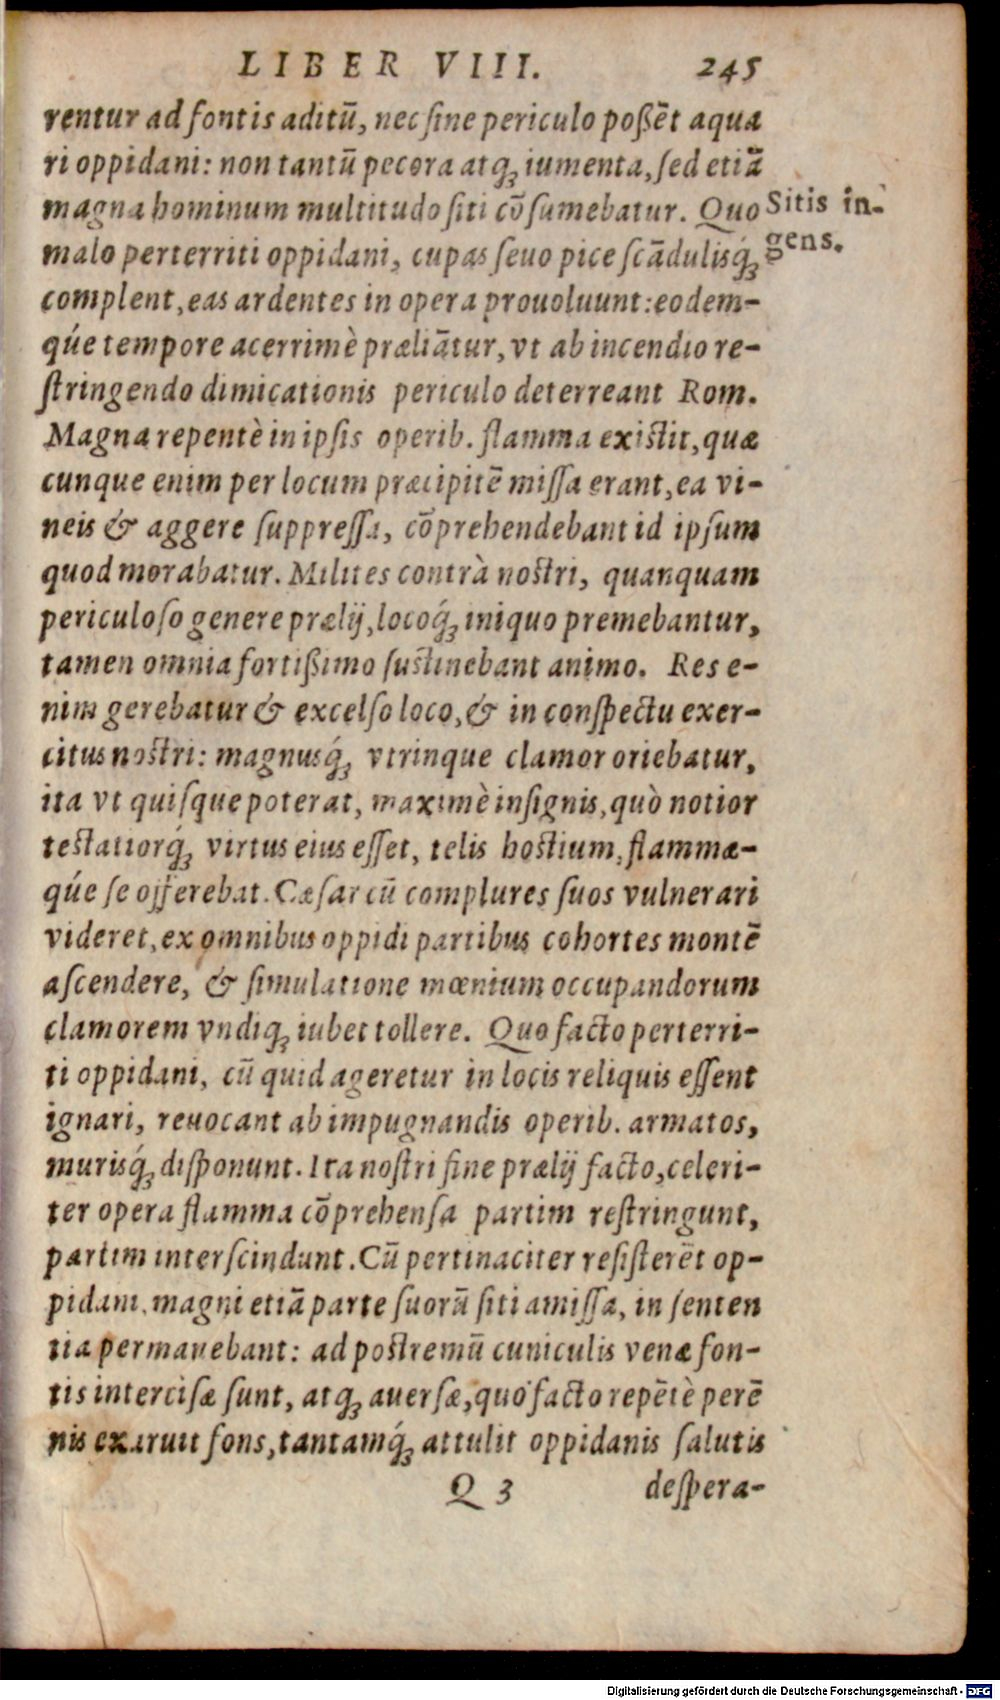 LIBER VIII. 245
rentur ad fontis aditū, nec ſine periculo poßēt aqua
ri oppidani: non tantū pecora atq́ꝫ iumenta, ſed etiā
magna hominum multitudo ſiti cōſumebatur. Quo
Sitis in-
gens.
malo perterriti oppidani, cupas ſeuo pice ſcādulisq́ꝫ
complent, eas ardentes in opera prouoluunt: eodem-
qúe tempore acerrimè præliātur, vt ab incendio re-
ſtringendo dimicationis periculo deterreant Rom.
Magna repentè in ipſis operib. flamma exiſtit, quæ
cunque enim per locum præcipitē miſſa erant, ea vi-
neis & aggere ſuppreſſa, cōprehendebant id ipſum
quod morabatur. Milites contrà noſtri, quanquam
periculoſo genere prælij, locoq́ꝫ iniquo premebantur,
tamen omnia fortißimo ſuſtinebant animo. Res e-
nim gerebatur & excelſo loco, & in conſpectu exer-
citus noſtri: magnusq́ꝫ vtrinque clamor oriebatur,
ita vt quiſque poterat, maximè inſignis, quò notior
teſtatiorq́ꝫ virtus eius eſſet, telis hoſtium, flammæ-
qúe ſe offerebat. Cæſar cū complures ſuos vulnerari
videret, ex omnibus oppidi partibus cohortes montē
aſcendere, & ſimulatione mœnium occupandorum
clamorem vndiqꝫ iubet tollere. Quo facto perterri-
ti oppidani, cū quid ageretur in locis reliquis eſſent
ignari, reuocant ab impugnandis operib. armatos,
murisq́ꝫ diſponunt. Ita noſtri fine prælij facto, celeri-
ter opera flamma cōprehenſa partim reſtringunt,
partim interſcindunt. Cū pertinaciter reſiſterēt op-
pidani, magni etiā parte ſuorū ſiti amiſſa, in ſenten
tia permanebant: ad poſtremū cuniculis venæ fon-
tis interciſæ ſunt, atqꝫ auerſæ, quo facto repētè perē
nis exaruit fons, tantamq́ꝫ attulit oppidanis ſalutis
Q 3 deſpera-
Digitalisierung gefördert durch die Deutsche Forschungsgemeinschaft - DFG